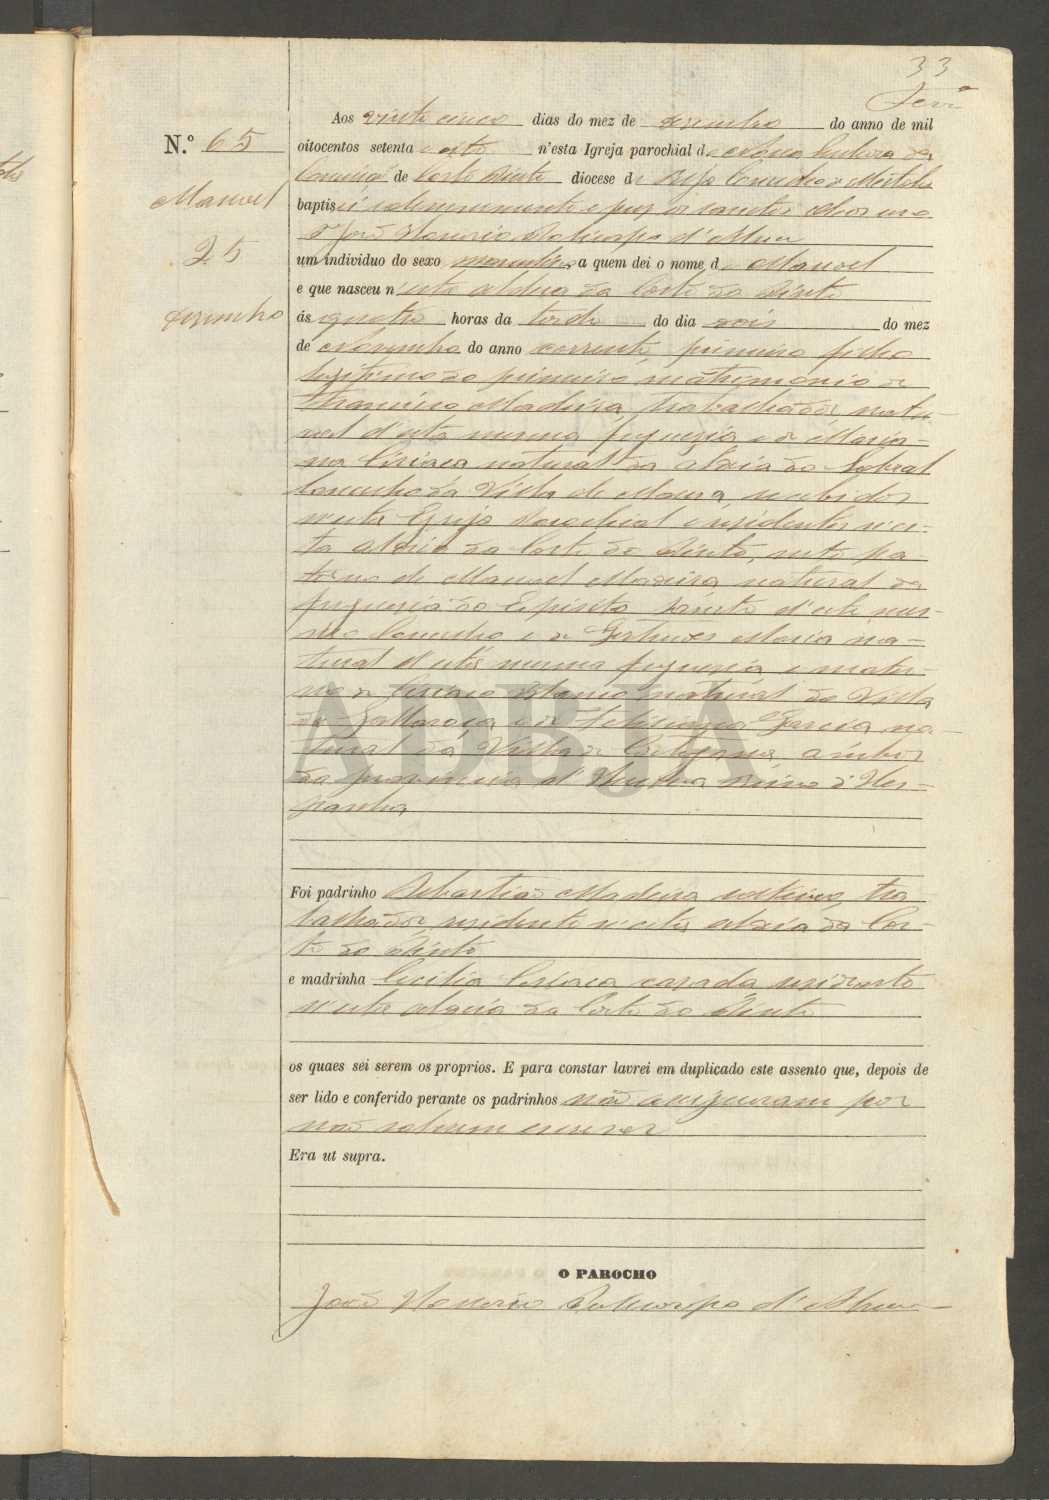 33
N.º 65
Manoel
25
dezembro
Aos vinte cinco dias do mez de dezembro do anno de mil
oitocentos setenta e oito n'esta Igreja parochial de Nossa Senhora da
Conceição de Corte Pinto diocese de Beja Concelho de Mertola
baptisei solemnemente e puz os sanctos oleos
João Honorio Policarpo d'
um individuo do sexo masculino a quem dei o nome de Manoel
e que nasceu n'esta aldeia da Corte do Pinto
ás quatro horas da tarde do dia dois do mez
de Novembro do anno corrente, primeiro filho
legitimo do primeiro matrimonio de
Francisco Madeira, trabalhador natu-
ral d'esta mesma freguezia e de Maria-
na Ciriaca natural da aldeia do Sobral
Concelho da Villa de Moura, recebidos
n'esta Egreja Parochial e residentes n'es-
ta aldeia da Corte do Pinto, neto pa-
terno de Manoel Madeira natural da
freguezia do Espirito Santo d'este mes-
mo Concelho e de Gertrudes Maria na-
tural d'esta mesma freguezia e mater-
no de Ciriaco natural da Villa
da e de Garcia na-
tural da Villa de ambos
da provincia d'Huelva Reino d'Hes-
panha
Foi padrinho Sebastião Madeira solteiro, tra
balhador, residente n'esta aldeia da Cor-
te do Pinto
e madrinha Cecilia Ciriaca casada residente
n'esta aldeia da Corte do Pinto
os quaes sei serem os proprios. E para constar lavrei em duplicado este assento que, depois de
ser lido e conferido perante os padrinhos não assignaram por
não saberem escrever
Era ut supra.
O PAROCHO
João Honorio Policarpo d'
ADBJA